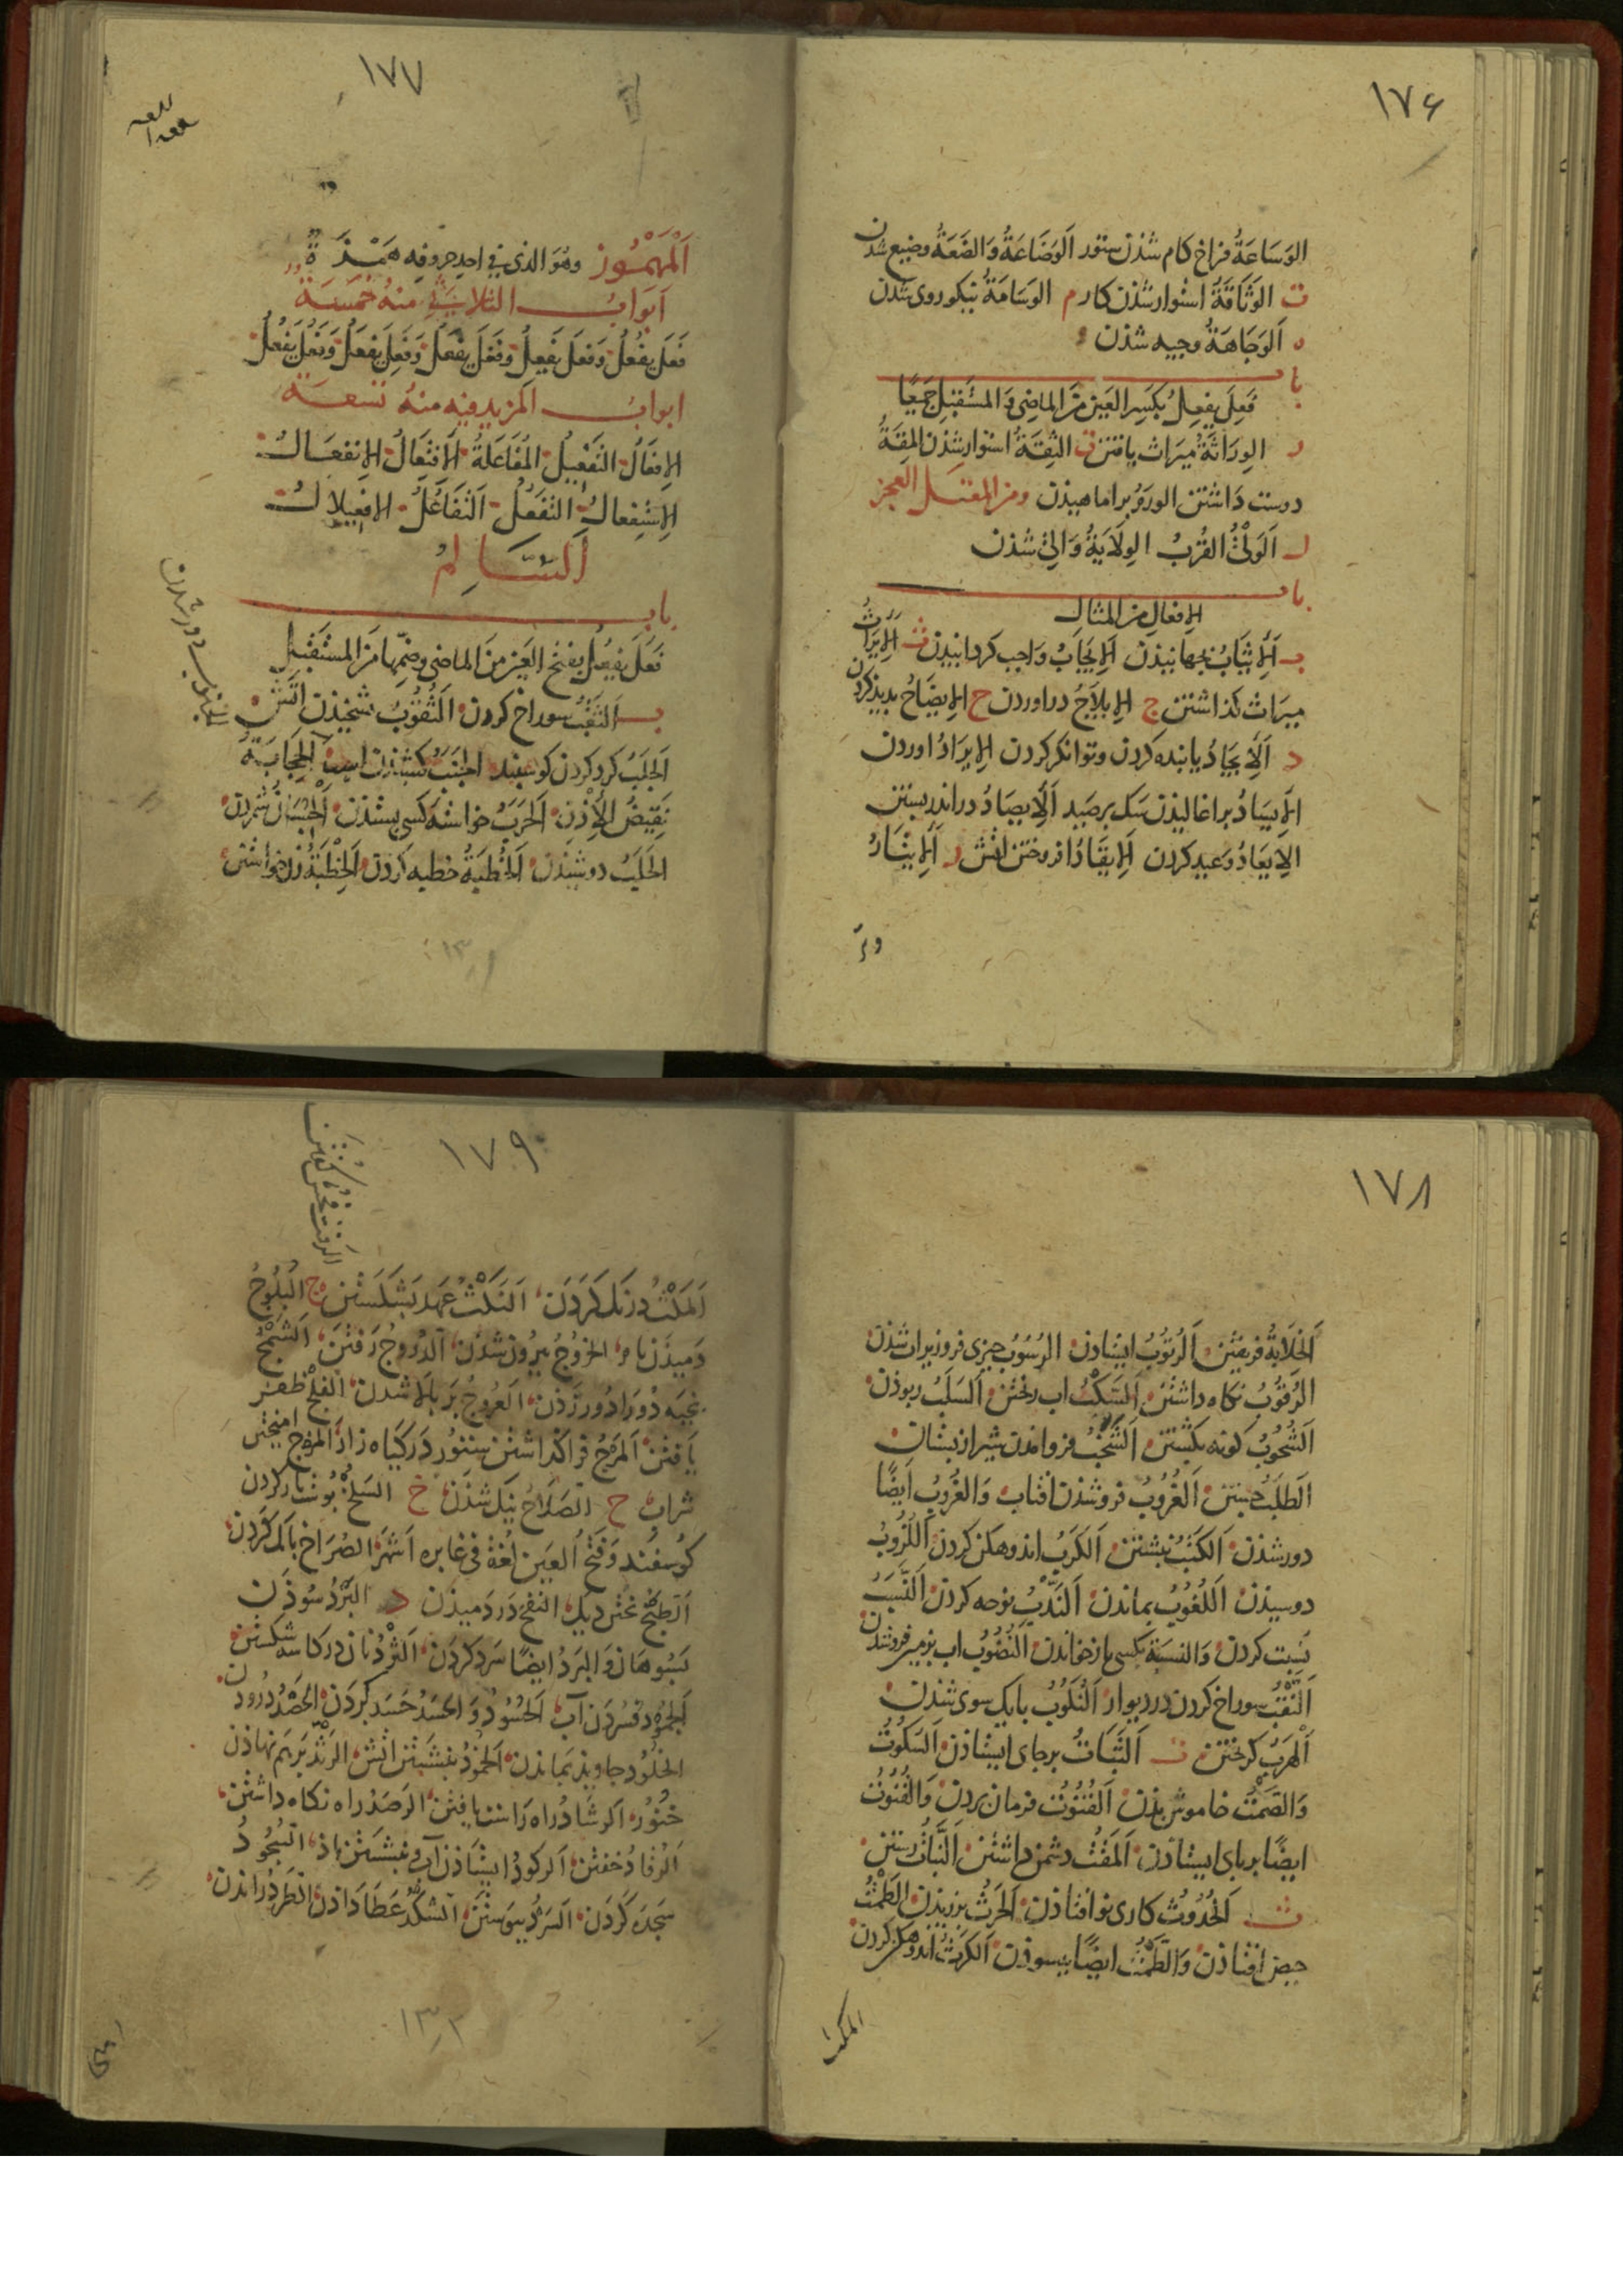 ١٧۶
الوَسَاعَةُ فراخ کام شذن ستور الوَضَاعَةُ وَالضَعَةُ وضیع شدن
ق الوَثَاقَةُ استوار شذن کار م الوَسَامَةُ نیکوروی شدن
ه الوَجَاهَةُ وجیه شذن
باب
فَعِلَ یفعِلُ بکسر العَین مِنَ الماضِی وَالمستَقبِل جَمیعًا
الوِرَاثَةُ میرَاث یافتن ق الثِقَةُ استوار شذن المِقَةُ
دوست دَاشتن الورَمُ برآماهیذن ومن المعتل العجز
اَلوَلْیُ القُرْبُ الوِلَایَةُ وَالِی شذن
باب
الإفعَالِ من المثال
ب اَلإیثَابُ بجهانیذن اَلإیجَابُ وَاجب کردانیدن ث اَلإیرَاثُ
میرَاث کذاشتن ج الإیلَاجُ دراوردن ح الإیضَاحُ بدید کردن
د اَلإیجَادُ یابنده کردن وتوانکر کردن الإیرَادُ اوردن
الإیسَادُ براغالیذن سَک بر صَید اَلإیصَادُ در اندر بستن
الإیعَادُ وَعید کردن الإیقَادُ افروختن اتش ر
١٧٧
اَلْمَهْمُوز وهُوَ الذی فی احد حروفِه هَمْزَةٌ
اَبوَابُ الثلاثی منهُ خَمسَةٌ
فَعَلَ یفعُلُ وَفعَلَ یَفعِلُ وفَعَلَ یفعَلُ وَفَعِلَ یفعَلُ وَفَعُلَ یفعُلُ
ابوابُ المزید فیه منهُ تسعَة
الإفعَالُ التَفعِیلُ المُفَاعَلَةُ الإفتِعَالُ الإنفِعَالُ
الإستِفعالُ التَفَعُّلُ اَلتَفَاعُلُ الإفعِیلالُ
اَلسَّالِمُ
باب
فَعَلَ یفعُلُ بفتح العَین مِنَ الماضی وضمِّها مِنَ المستَقبل
ب اَلثقبُ سوراخ کردن اَلثُقُوبُ
اَلجَلبُ کرد کردن کوسفند
نقِیضُ الإذن اَلحَرَبُ خواسته کسی بستذن اَلحُسْبَانُ شمردن
الحَلَبُ دوشیذن اَلخُطبَةُ خطبه کردن اَلخِطْبَةُ زن خواستن
١٧٨
اَلخَلَابَةُ فریفتن اَلرُتُوبُ ایستاذن الرُسُوبُ چیزی فروذ زیر اب شذن
الرُقُوبُ نکاه داشتن اَلسَکْبُ اب ریختن السَلبُ ربوذن
اَلشُحُوبُ کونه بکشتن اَلشَخْبُ شیر از پستان
اَلطَلَبُ جستن اَلغُرُوبُ فروشذن افتاب وَالغُرُوبُ ایضًا
دور شذن اَلکَتْبُ نبشتن اَلکَرْبُ اندوهکن کردن اَللُزُوبُ
دوسیذن اَللُغُوبُ بماندن اَلنَدْبُ نوحه کردن اَلنَسَبُ
نسبت کردن وَالنسبَة بکسی باز خواندن اَلنُضُوبُ اب بزمین فروشذن
اَلنَقْبُ سوراخ کردن در دیوار اَلنُکُوبُ بایک سوی شذن
اَلهَرَبُ کریختن ت اَلثَبَاتُ برجای ایستاذن اَلسُکُوتُ
وَالصَمْتُ خاموش بوذن اَلقُنُوتُ فرمان بردن وَالقُنُوتُ
ایضًا برپای ایستاذن اَلمَقْتُ دشمن داشتن اَلنَبَاتُ رستن
ث اَلحُدُوثُ کاری نو افتاذن اَلحَرْثُ برزیدن اَلطَمْثُ
حیض افتاذن وَالطَمْثُ ایضًا بپسوذن اَلکَرْثُ اندوهکن کردن
المکث
١٧٩
اَلمَکْثُ درنک کَردَن اَلنَکْثُ عَهد بشکَستن ج اَلبُلُوجُ
دَمیذَن بام الخُرُوجُ بیرُون شذن اَلدُرُوجُ رَفتن اَلشَمْجُ
بخیَه دُورَادُور زَذن اَلعُرُوجُ بَر بالا شدن الفَلْجُ ظفر
یَافتن اَلمَرْجُ فراکذاشتن ستور دَر کیَاه زار اَلمَزْجُ امیختن
شراب ح اَلصَلَاحُ نیک شذن خ السَلْخُ پوست باز کردن
کوسفند وَفَتْحُ العَین لُغَة فی غابره اَشهَر الصُرَاخ بانک کَردن
اَلطبْخُ پختن دیک النفْخُ دَر دَمیذن د البَرْدُ سُوذَن
بسُوهَان وَالبَرْدُ ایضًا سَرد کَردَن اَلثَرْدُ نان در کاسه شکستن
اَلجُمُودُ فسُردَن آب اَلحُسُودُ وَالحَسَدُ حَسَد کردَن اَلحَصْدُ درودن
الخلُودُ جاویذ بمَاندن اَلخُمُودُ بنشستن اتش الرَثْدُ بَرهَم نهاذن
خنُور الرشَادُ راه رَاست یافتن الرصَدُ راه نکاه داشتن
الرُقَادُ خفتن الرکودُ ایستاذن آب وبنشستن باذ السُجُودُ
سَجده کَردَن السَرْدُ پیوستن الشکْدُ عَطا دَاذن الطَرْدُ راندن